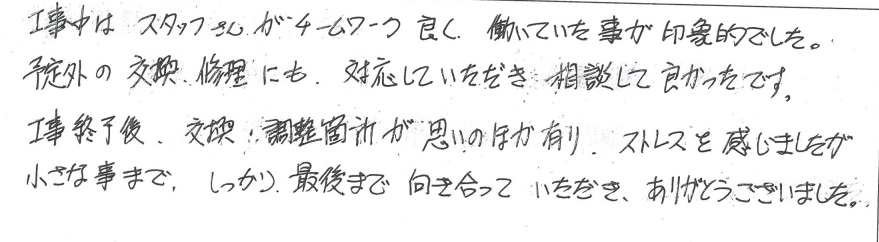 工事中は スタッフさんがチームワーク良く、働いていた事が印象的でした。
予定外の交換、修理にも、対応していただき 相談して良かったです。
工事終了後、交換・調整箇所が思いのほか有り、ストレスを感じましたが
小さな事まで、しっかり、最後まで向き合っていただき、ありがとうございました。